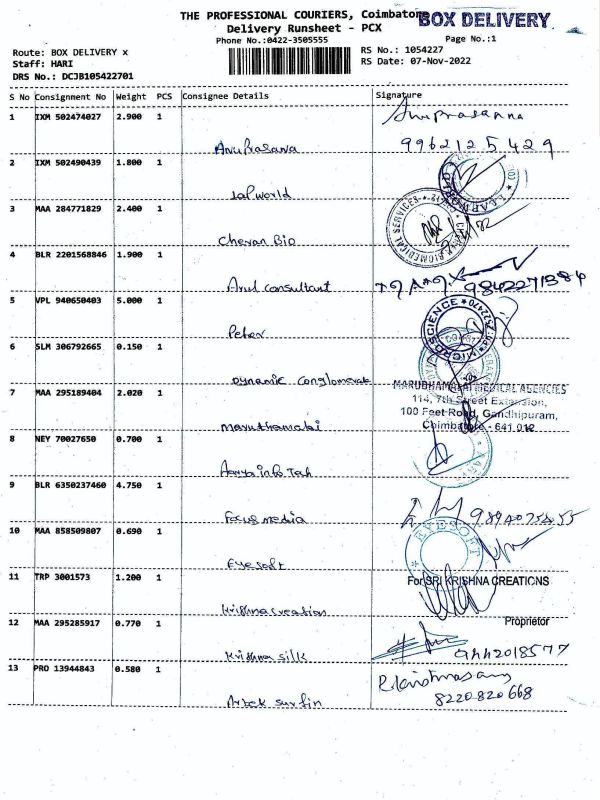 THE PROFESSIONAL COURIERS, Coimbatore
BOX DELIVERY
Delivery Runsheet - PCX
Phone No.:0422-3505555
Page No.:1
Route: BOX DELIVERY x
RS No.: 1054227
Staff: HARI
RS Date: 07-Nov-2022
DRS No.: DCJB105422701
S No Consignment No Weight PCS Consignee Details Signature
1 IXM 502474027 2.900 1
Anuprasanna
AnuPrasana 9962125429
2 IXM 502490439 1.800 1
Lal world
3 MAA 284771829 2.400 1
BIOMEDICAL SERVICES
Chevan Bio
4 BLR 2201568846 1.900 1
Arul consultant 9842271384
5 VPL 940650403 5.000 1
MICROSCIENCE
Peter
6 SLM 306792665 0.150 1
Dynamic conglomerate
MARUDHAMALAI MEDICAL AGENCIES
7 MAA 295189404 2.020 1
114, 7th Street Extension,
100 Feet Road, Gandhipuram,
Coimbatore - 641 012
Maruthamalai
8 NEY 70027650 0.700 1
Aarya info Tech
9 BLR 6350237460 4.750 1
Focus media
10 MAA 858509807 0.690 1
EYESOFT
Eye soft
11 TRP 3001573 1.200 1
For SRI KRISHNA CREATIONS
Krishna creation
12 MAA 295285917 0.770 1
Proprietor
Krishna silk
13 PRO 13944843 0.580 1
8220820668